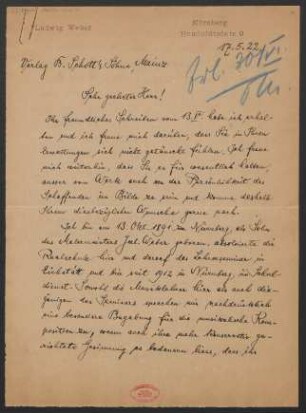 Ludwig Weber
Nürnberg
17.5.22
Verlag B. Schott's Söhne, Mainz
Sehr geehrter Herr!
Ihr freundliches Schreiben vom 13. habe ich erhal-
ten und ich freue mich darüber, dass Sie in Ihren
Erwartungen sich nicht getäuscht fühlen. Ich freue
mich weiterhin, dass Sie es für wesentlich halten,
ausser vom Werk auch von der Persönlichkeit des
Schaffenden im Bilde zu sein und komme deshalb
Ihrem diesbezüglichen Wunsche gerne nach.
Ich bin am 13. Okt. 1891 zu Nürnberg, als Sohn
des Malermeisters Weber geboren, absolvierte die
Realschule hier und darauf das Lehrerseminar in
Eichstätt und bin seit 1912 in Nürnberg, im Schul-
dienst. Sowohl die Musiklehrer hier als auch die-
jenigen des Seminares sprachen mir nachdrücklich
eine besondere Begabung für die musikalische Kom-
position zu, wenn auch ihre mehr konservativ ge-
richtete Gesinnung es bedauern liess, dass ihr